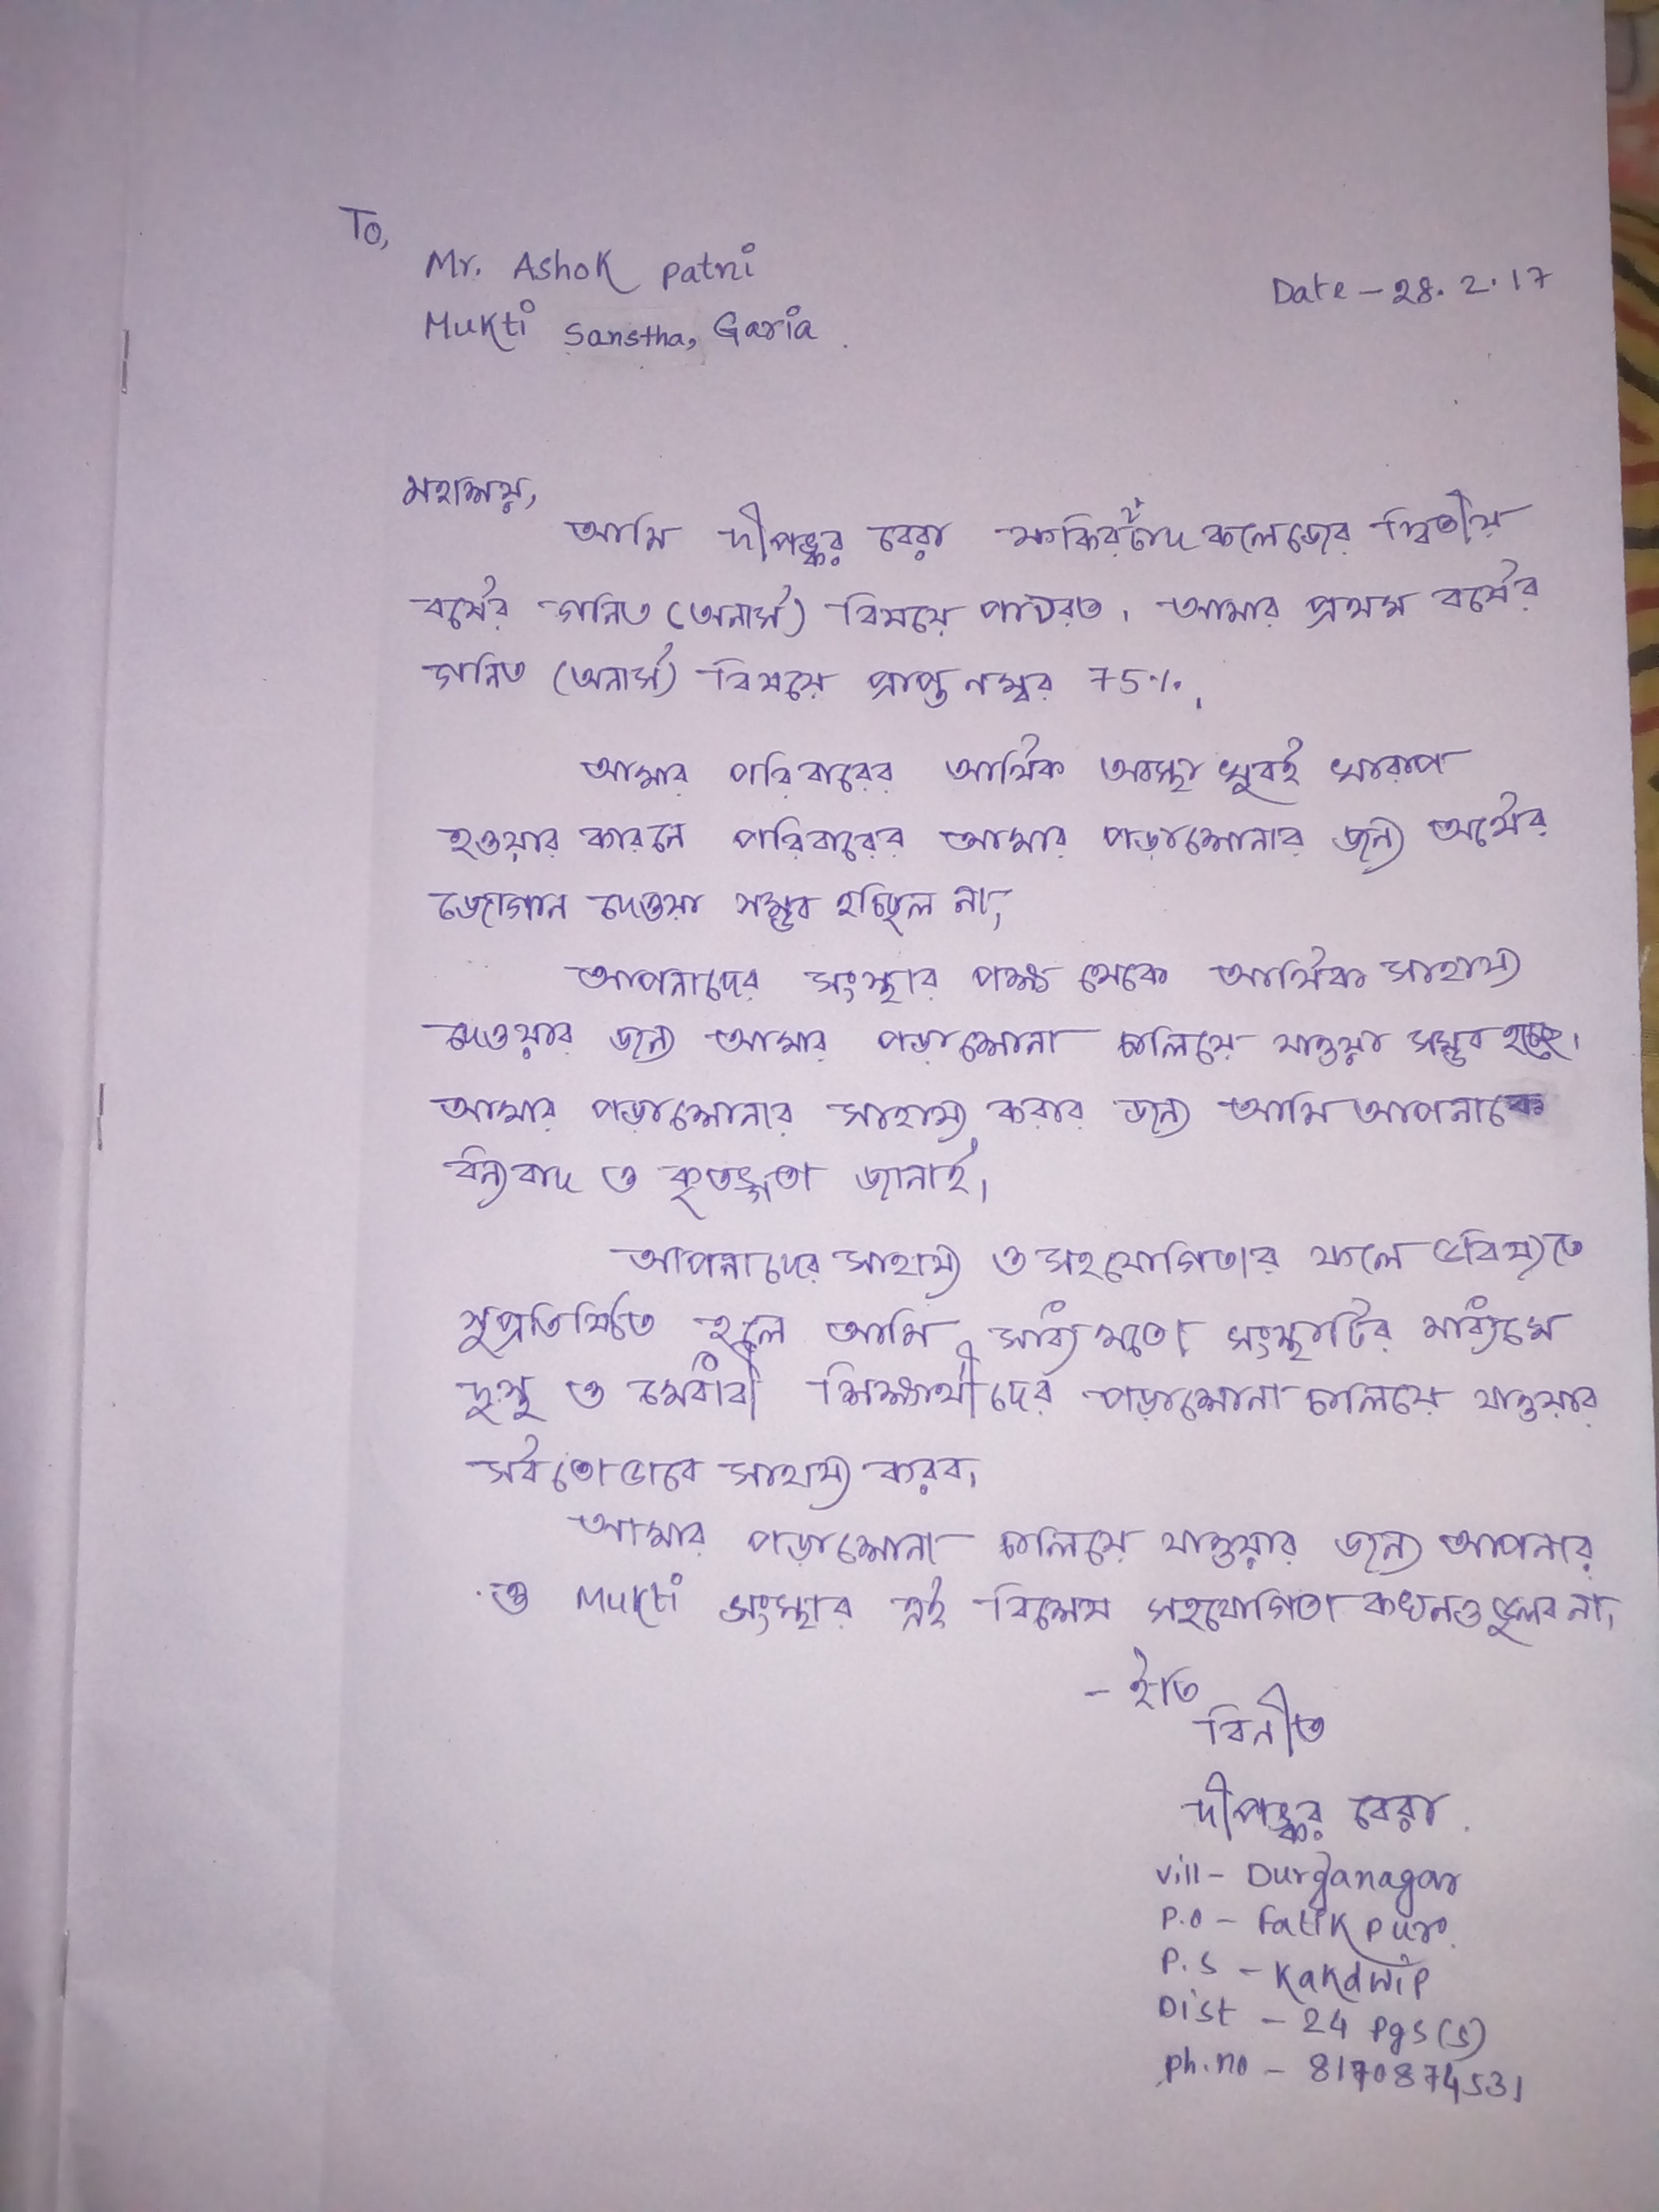 To,
Mr. Ashok Patni
Date - 28.2.17
Mukti Sanstha, Garia.
মহাশয়,
আমি দীপঙ্কর বেরা ফকিরচাঁদ কলেজের দ্বিতীয়
বর্ষের গনিত (অনার্স) বিষয়ে পাঠরত। আমার প্রথম বর্ষের
গনিত (অনার্স) বিষয়ে প্রাপ্ত নম্বর 75%.।
আমার পরিবারের আর্থিক অবস্থা খুবই খারাপ
হওয়ার কারনে পরিবারের আমার পড়াশোনার জন্য অর্থের
জোগান দেওয়া সম্ভব হচ্ছিল না,
আপনাদের সংস্থার পক্ষ থেকে আর্থিক সাহায্য
দেওয়ার জন্য আমার পড়াশোনা চালিয়ে যাওয়া সম্ভব হচ্ছে।
আমার পড়াশোনার সাহায্য করার জন্য আমি আপনাকে
ধন্যবাদ ও কৃতজ্ঞতা জানাই।
আপনাদের সাহায্য ও সহযোগিতার ফলে ভবিষ্যতে
সুপ্রতিষ্ঠিত হলে আমি সাধ্যমতো সংস্থাটির মাধ্যমে
দুস্থ ও মেধাবী শিক্ষার্থীদের পড়াশোনা চালিয়ে যাওয়ার
সর্বতোভাবে সাহায্য করব।
আমার পড়াশোনা চালিয়ে যাওয়ার জন্য আপনার
ও Mukti সংস্থার এই বিশেষ সহযোগিতা কখনও ভুলব না।
- ইতি
বিনীত
দীপঙ্কর বেরা.
Vill - Durganagar
P.O - Fatikpur.
P.S - Kakdwip
Dist - 24 Pgs(S)
Ph.no - 8170874531